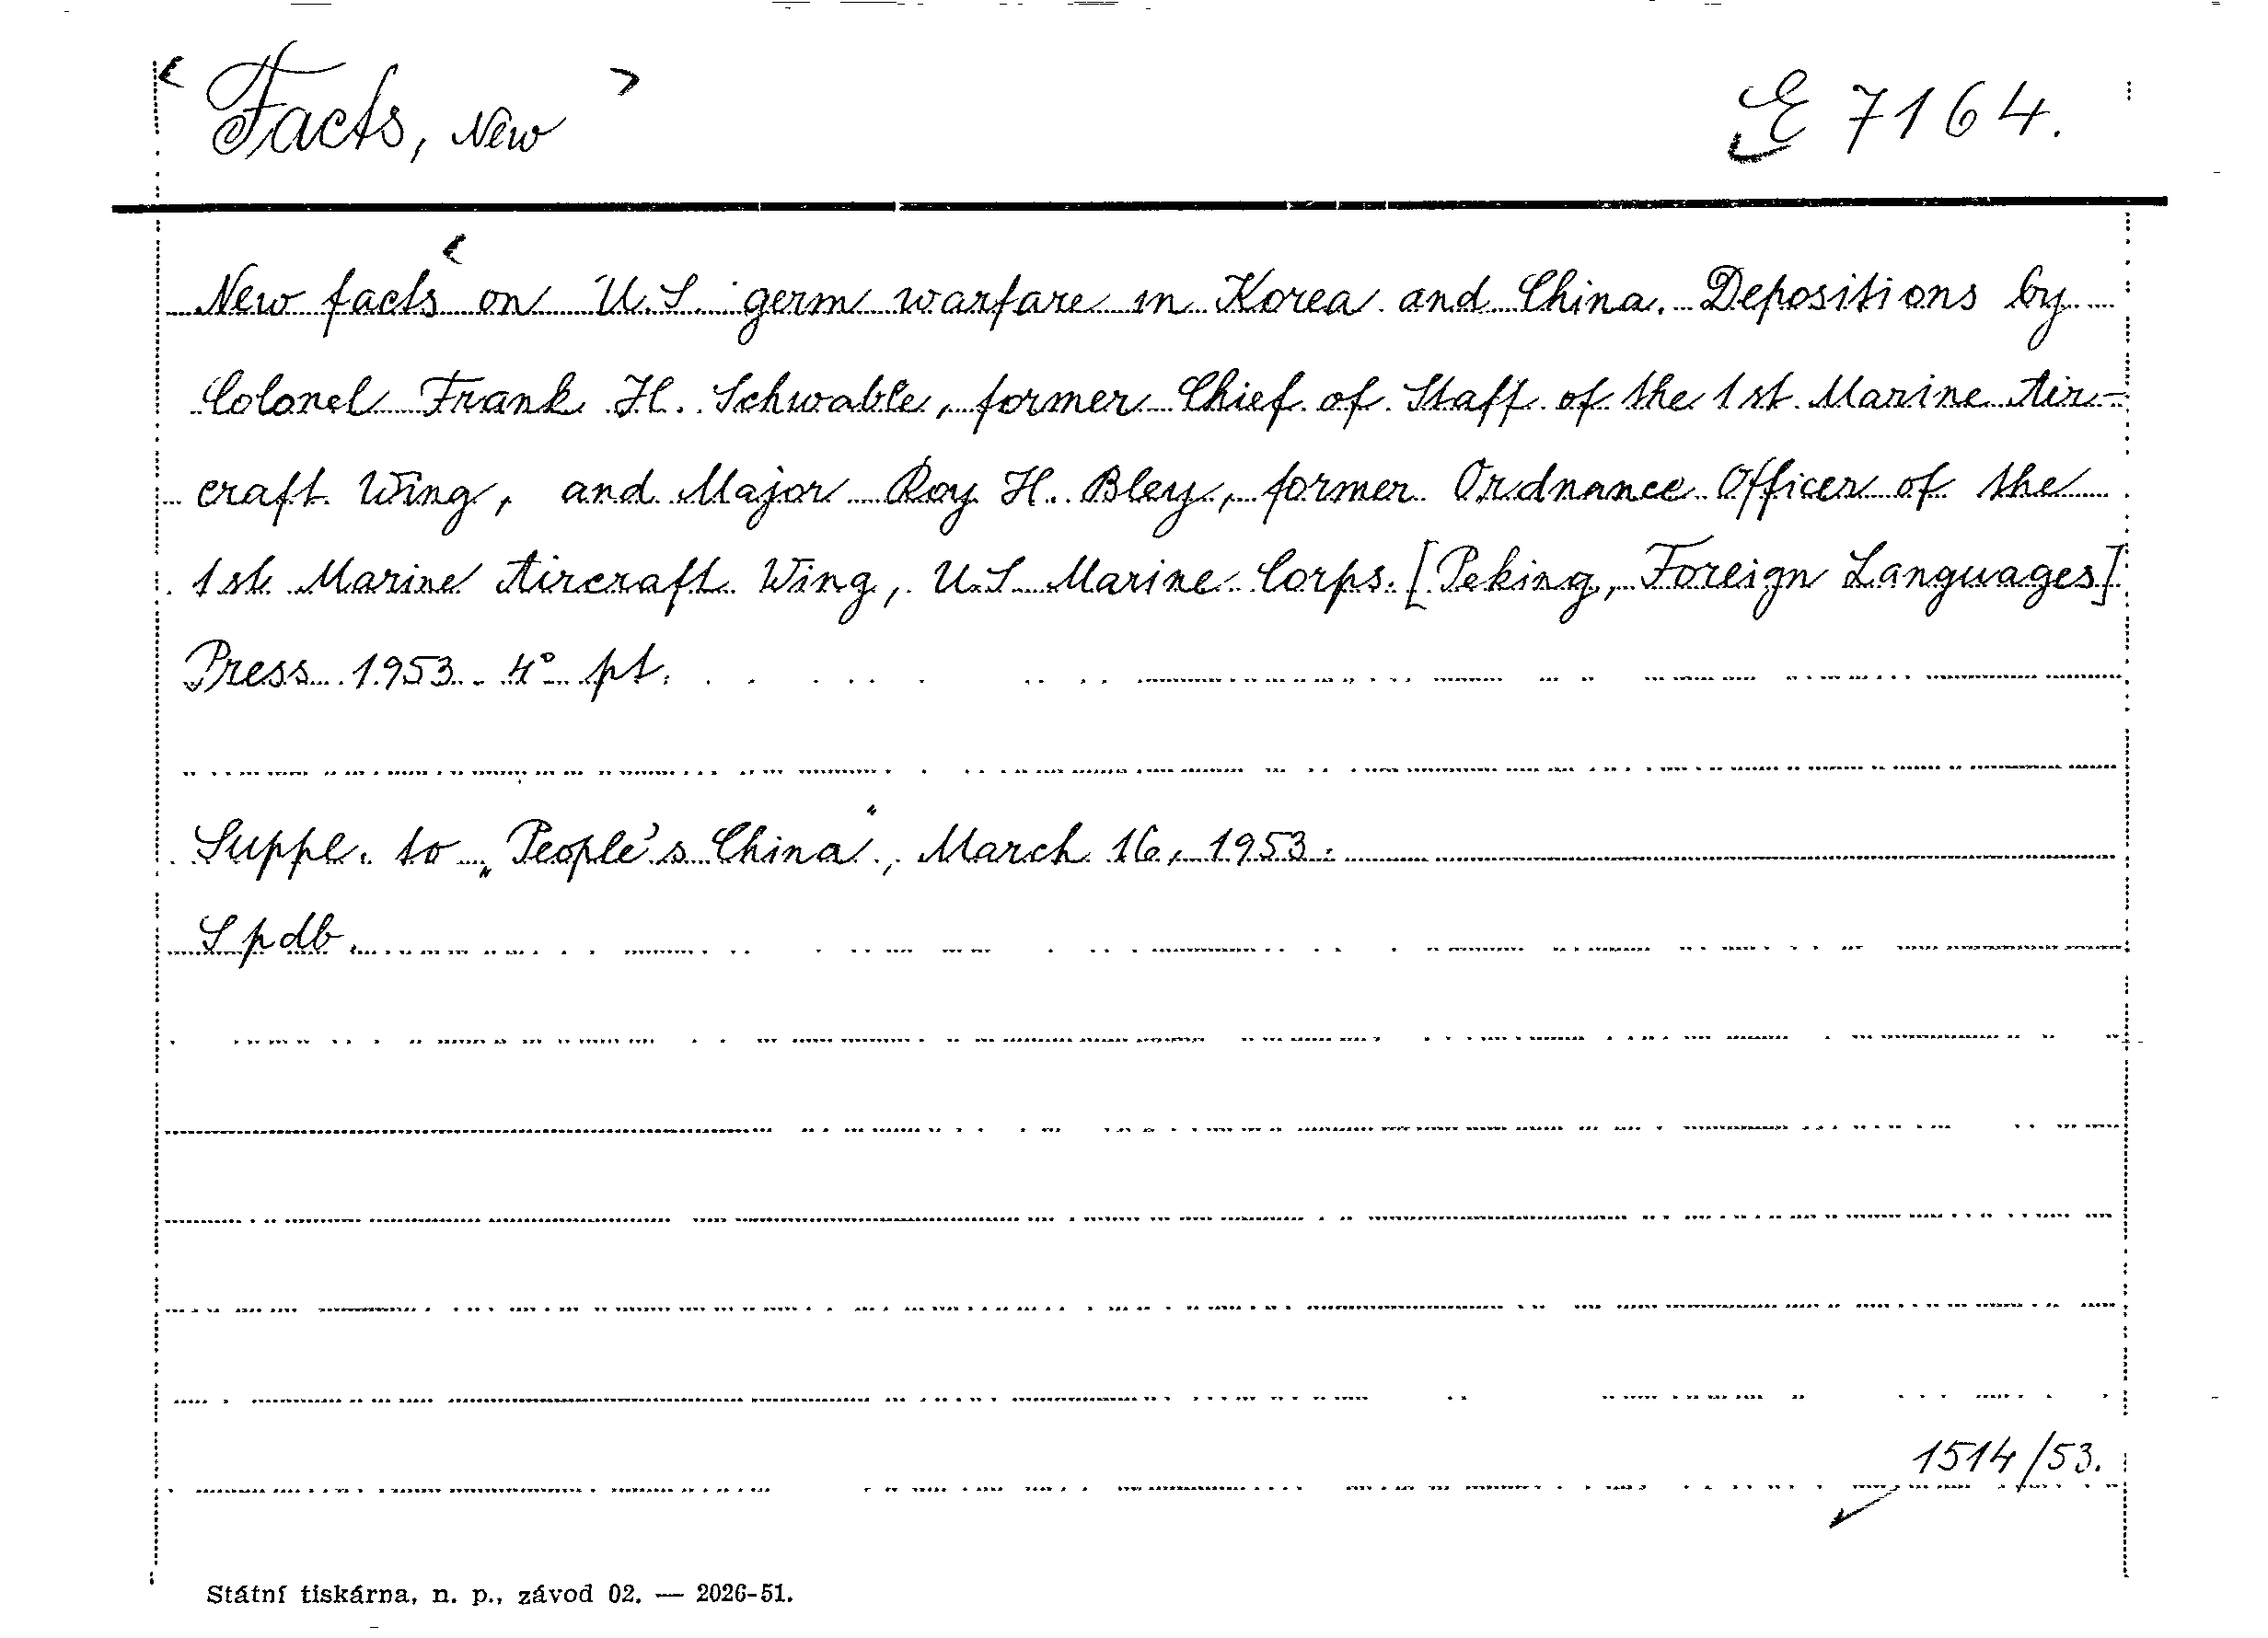 Facts, New
E 7164.
New facts on U.S. germ warfare in Korea and China. Depositions by
Colonel Frank H. Schwable, former Chief of Staff of the 1st Marine Air-
craft Wing, and Major Roy H. Bley, former Ordnance Officer of the
1st Marine Aircraft Wing, U.S. Marine Corps. [Peking, Foreign Languages]
Press 1953. 4° pt.
Suppl. to „People's China“, March 16, 1953.
S pdb.
1514/53.
Státní tiskárna, n. p., závod 02. — 2026-51.